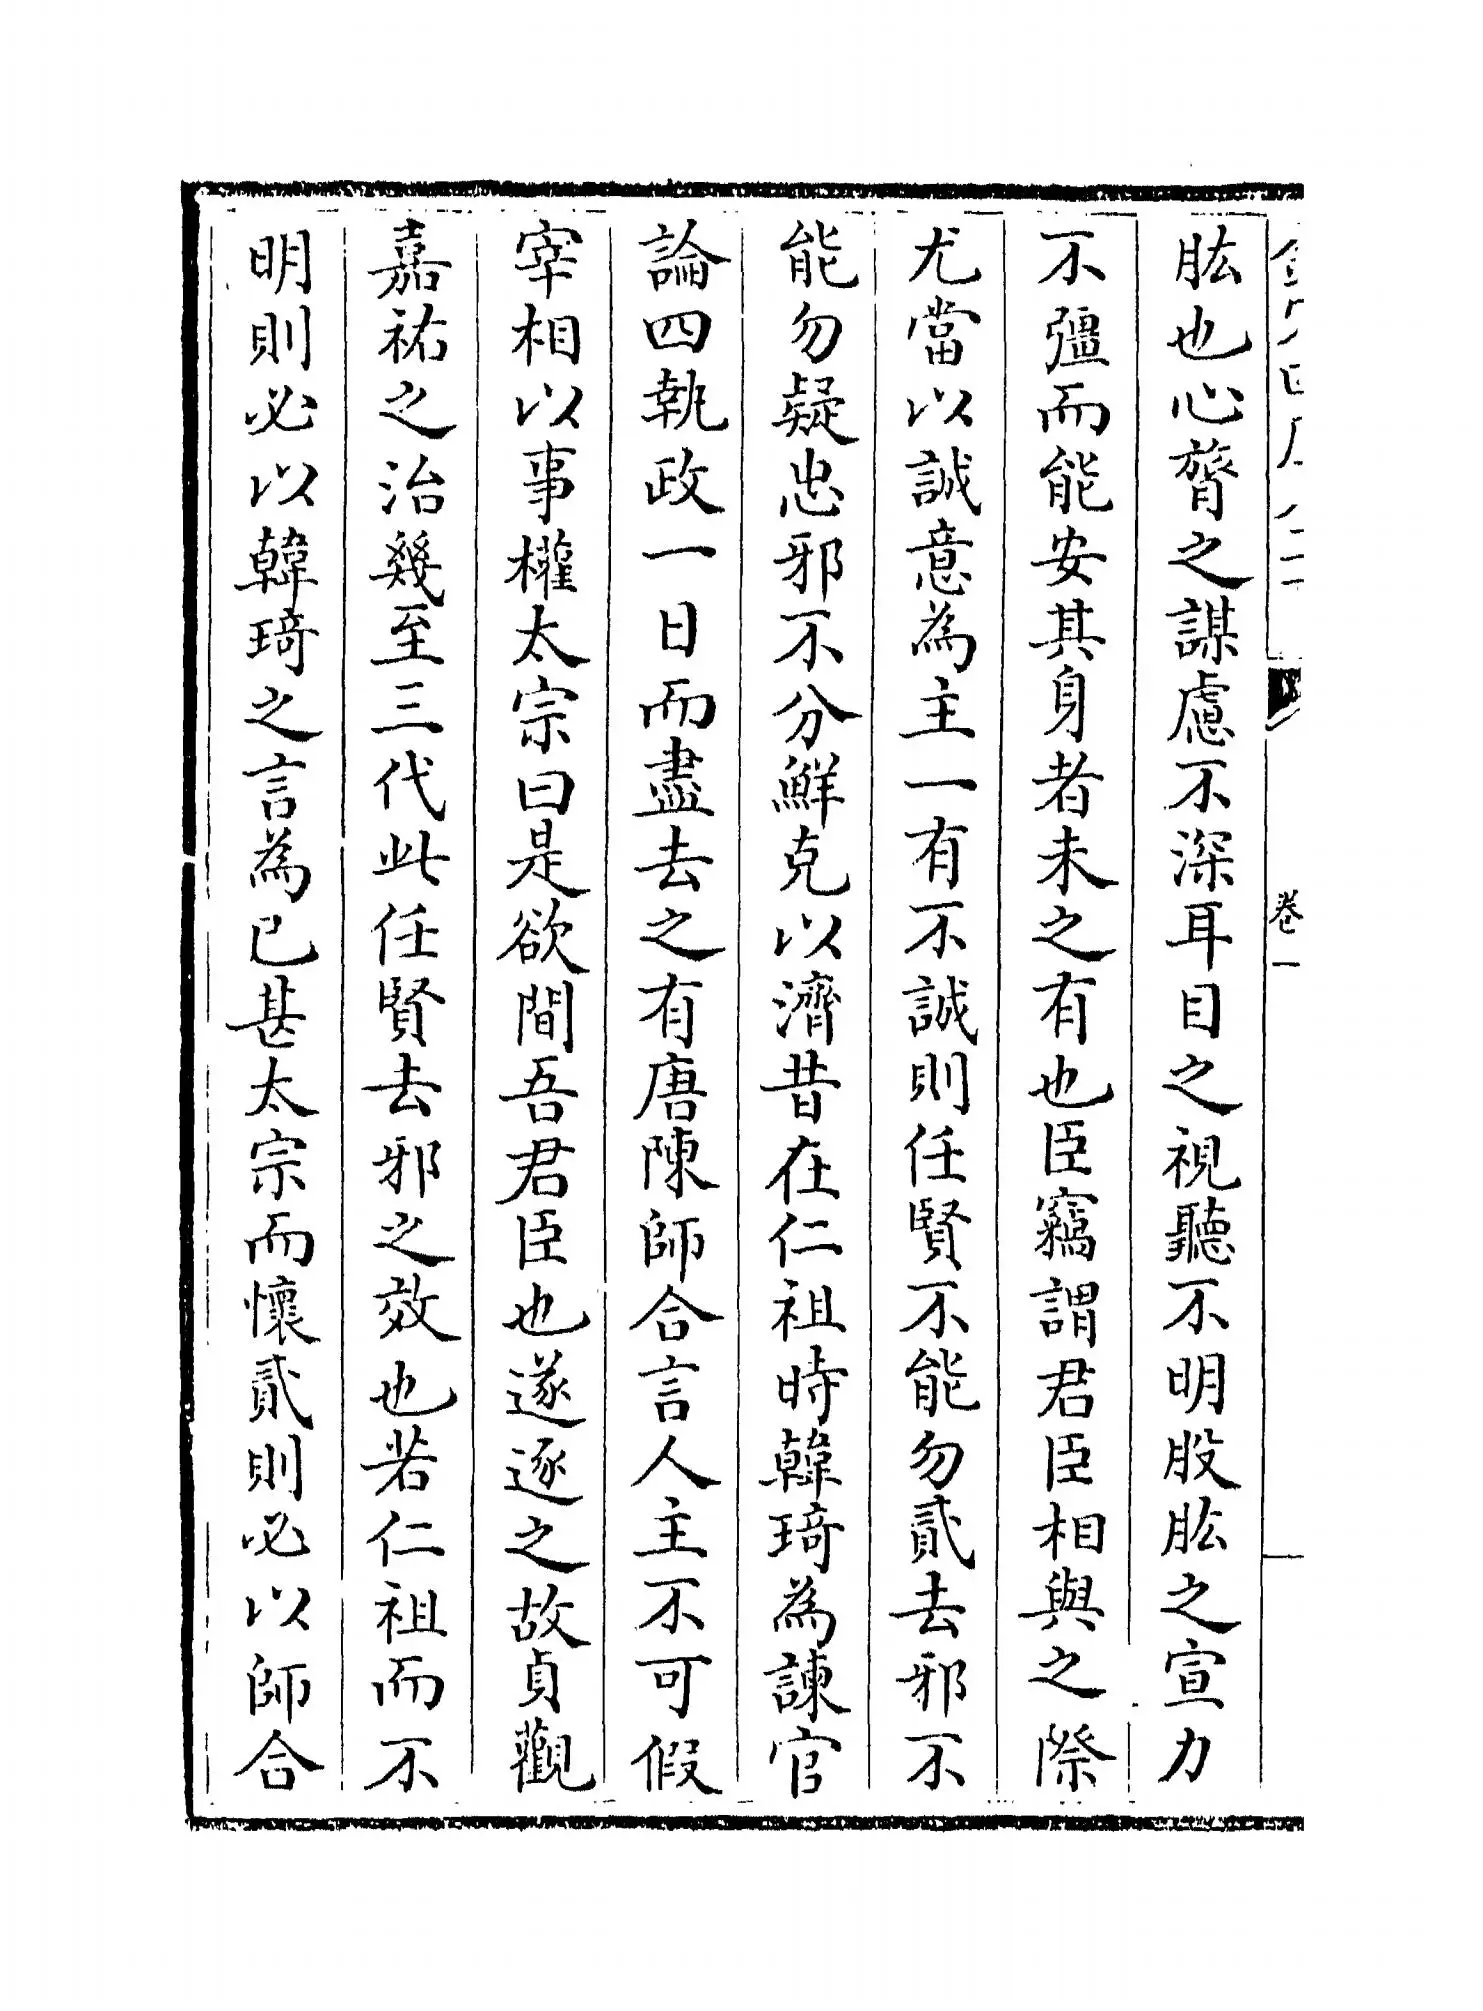 肱也心膂之謀慮不深耳目之視聽不明股肱之宣力
不彊而能安其身者未之有也臣竊謂君臣相與之際
尤當以誠意為主一有不誠則任賢不能勿貳去邪不
能勿疑忠邪不分鮮克以濟昔在仁祖時韓琦為諫官
論四執政一日而盡去之有唐陳師合言人主不可假
宰相以事權太宗曰是欲間吾君臣也遂逐之故貞觀
嘉祐之治幾至三代此任賢去邪之效也若仁祖而不
明則必以韓琦之言為已甚太宗而懷貳則必以師合
卷一